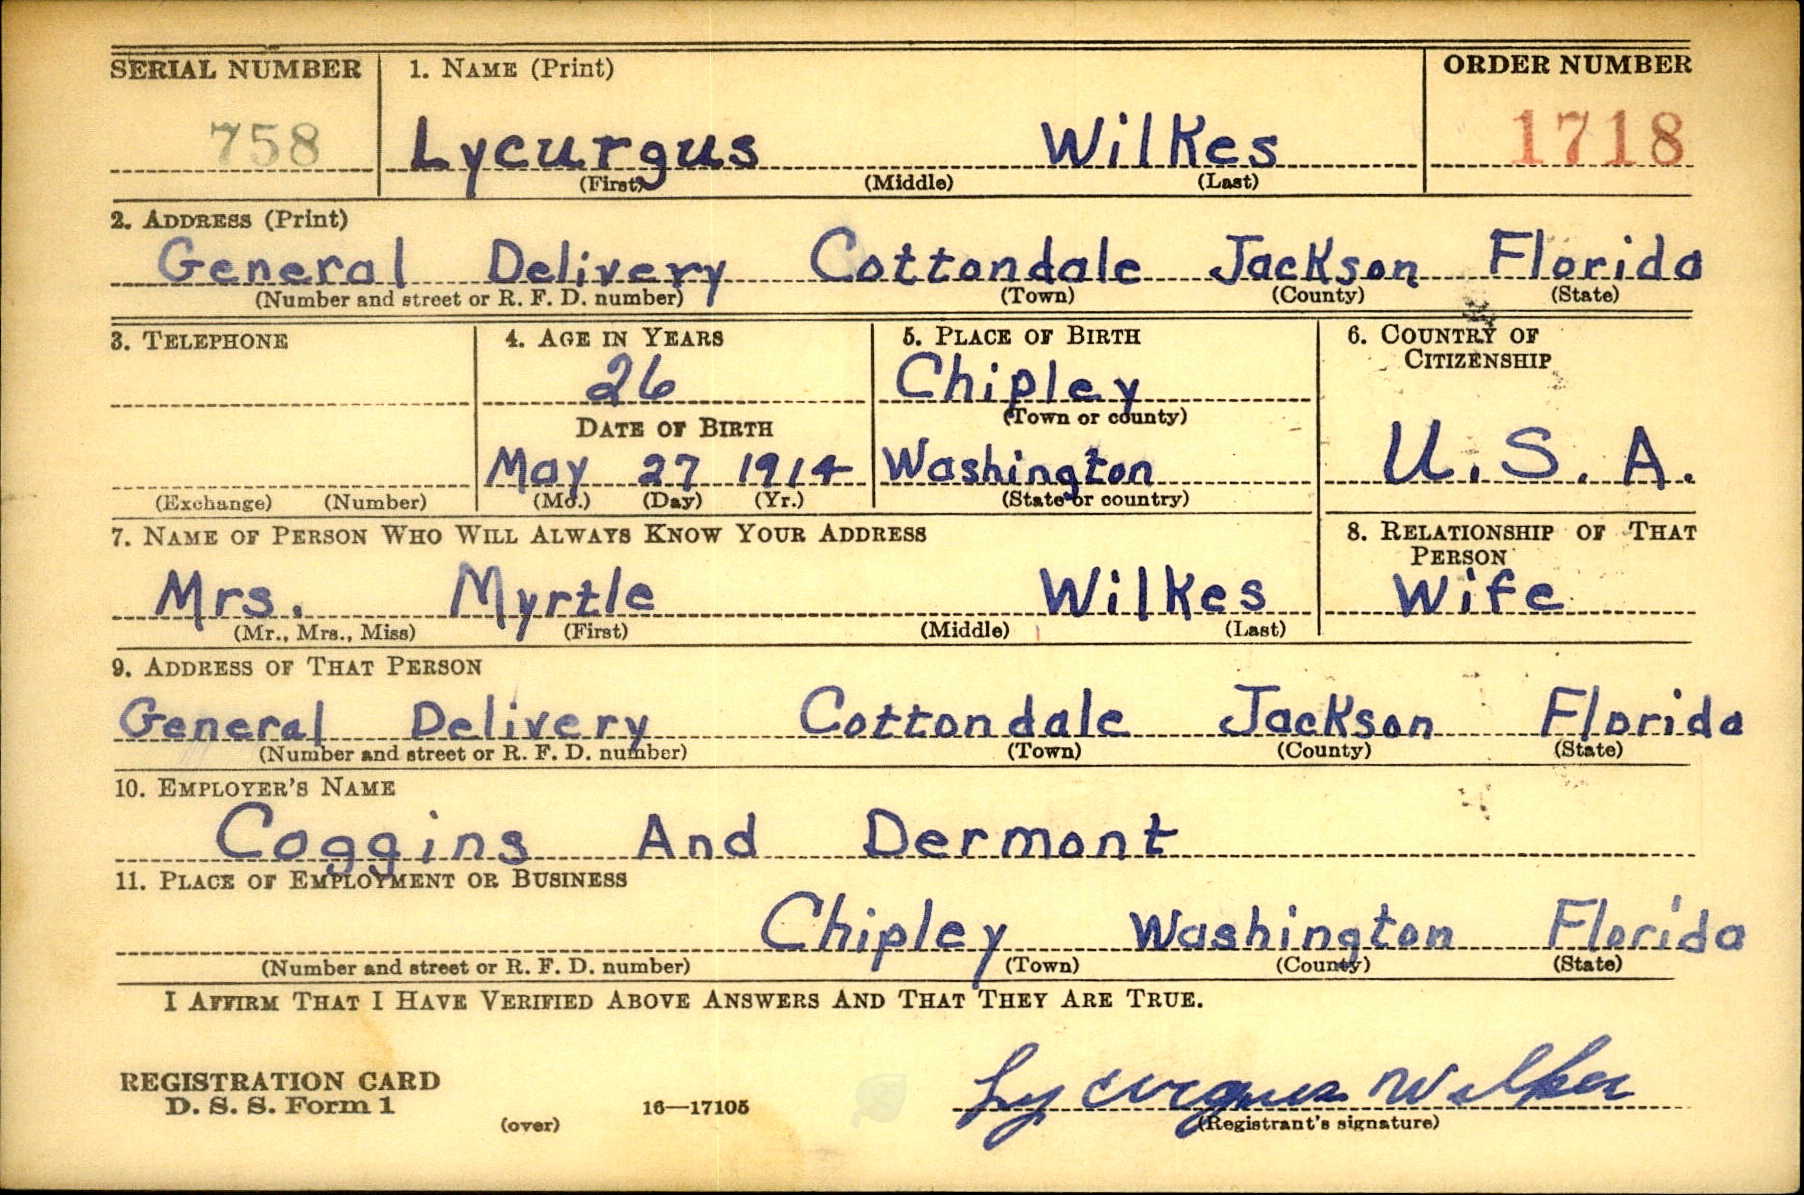 SERIAL NUMBER 1. NAME (Print) ORDER NUMBER
758 Lycurgus Wilkes 1718
(First) (Middle) (Last)
2. ADDRESS (Print)
General Delivery Cottondale Jackson Florida
(Number and street or R. F. D. number) (Town) (County) (State)
3. TELEPHONE 4. AGE IN YEARS 5. PLACE OF BIRTH 6. COUNTRY OF
CITIZENSHIP
26 Chipley
(Town or county)
DATE OF BIRTH
May 27 1914 Washington U.S.A.
(Exchange) (Number) (Mo.) (Day) (Yr.) (State or country)
7. NAME OF PERSON WHO WILL ALWAYS KNOW YOUR ADDRESS 8. RELATIONSHIP OF THAT
PERSON
Mrs. Myrtle Wilkes Wife
(Mr., Mrs., Miss) (First) (Middle) (Last)
9. ADDRESS OF THAT PERSON
General Delivery Cottondale Jackson Florida
(Number and street or R. F. D. number) (Town) (County) (State)
10. EMPLOYER'S NAME
Coggins And Dermont
11. PLACE OF EMPLOYMENT OR BUSINESS
Chipley Washington Florida
(Number and street or R. F. D. number) (Town) (County) (State)
I AFFIRM THAT I HAVE VERIFIED ABOVE ANSWERS AND THAT THEY ARE TRUE.
REGISTRATION CARD
D. S. S. Form 1 16—17105 Lycurgus Wilkes
(over) (Registrant's signature)